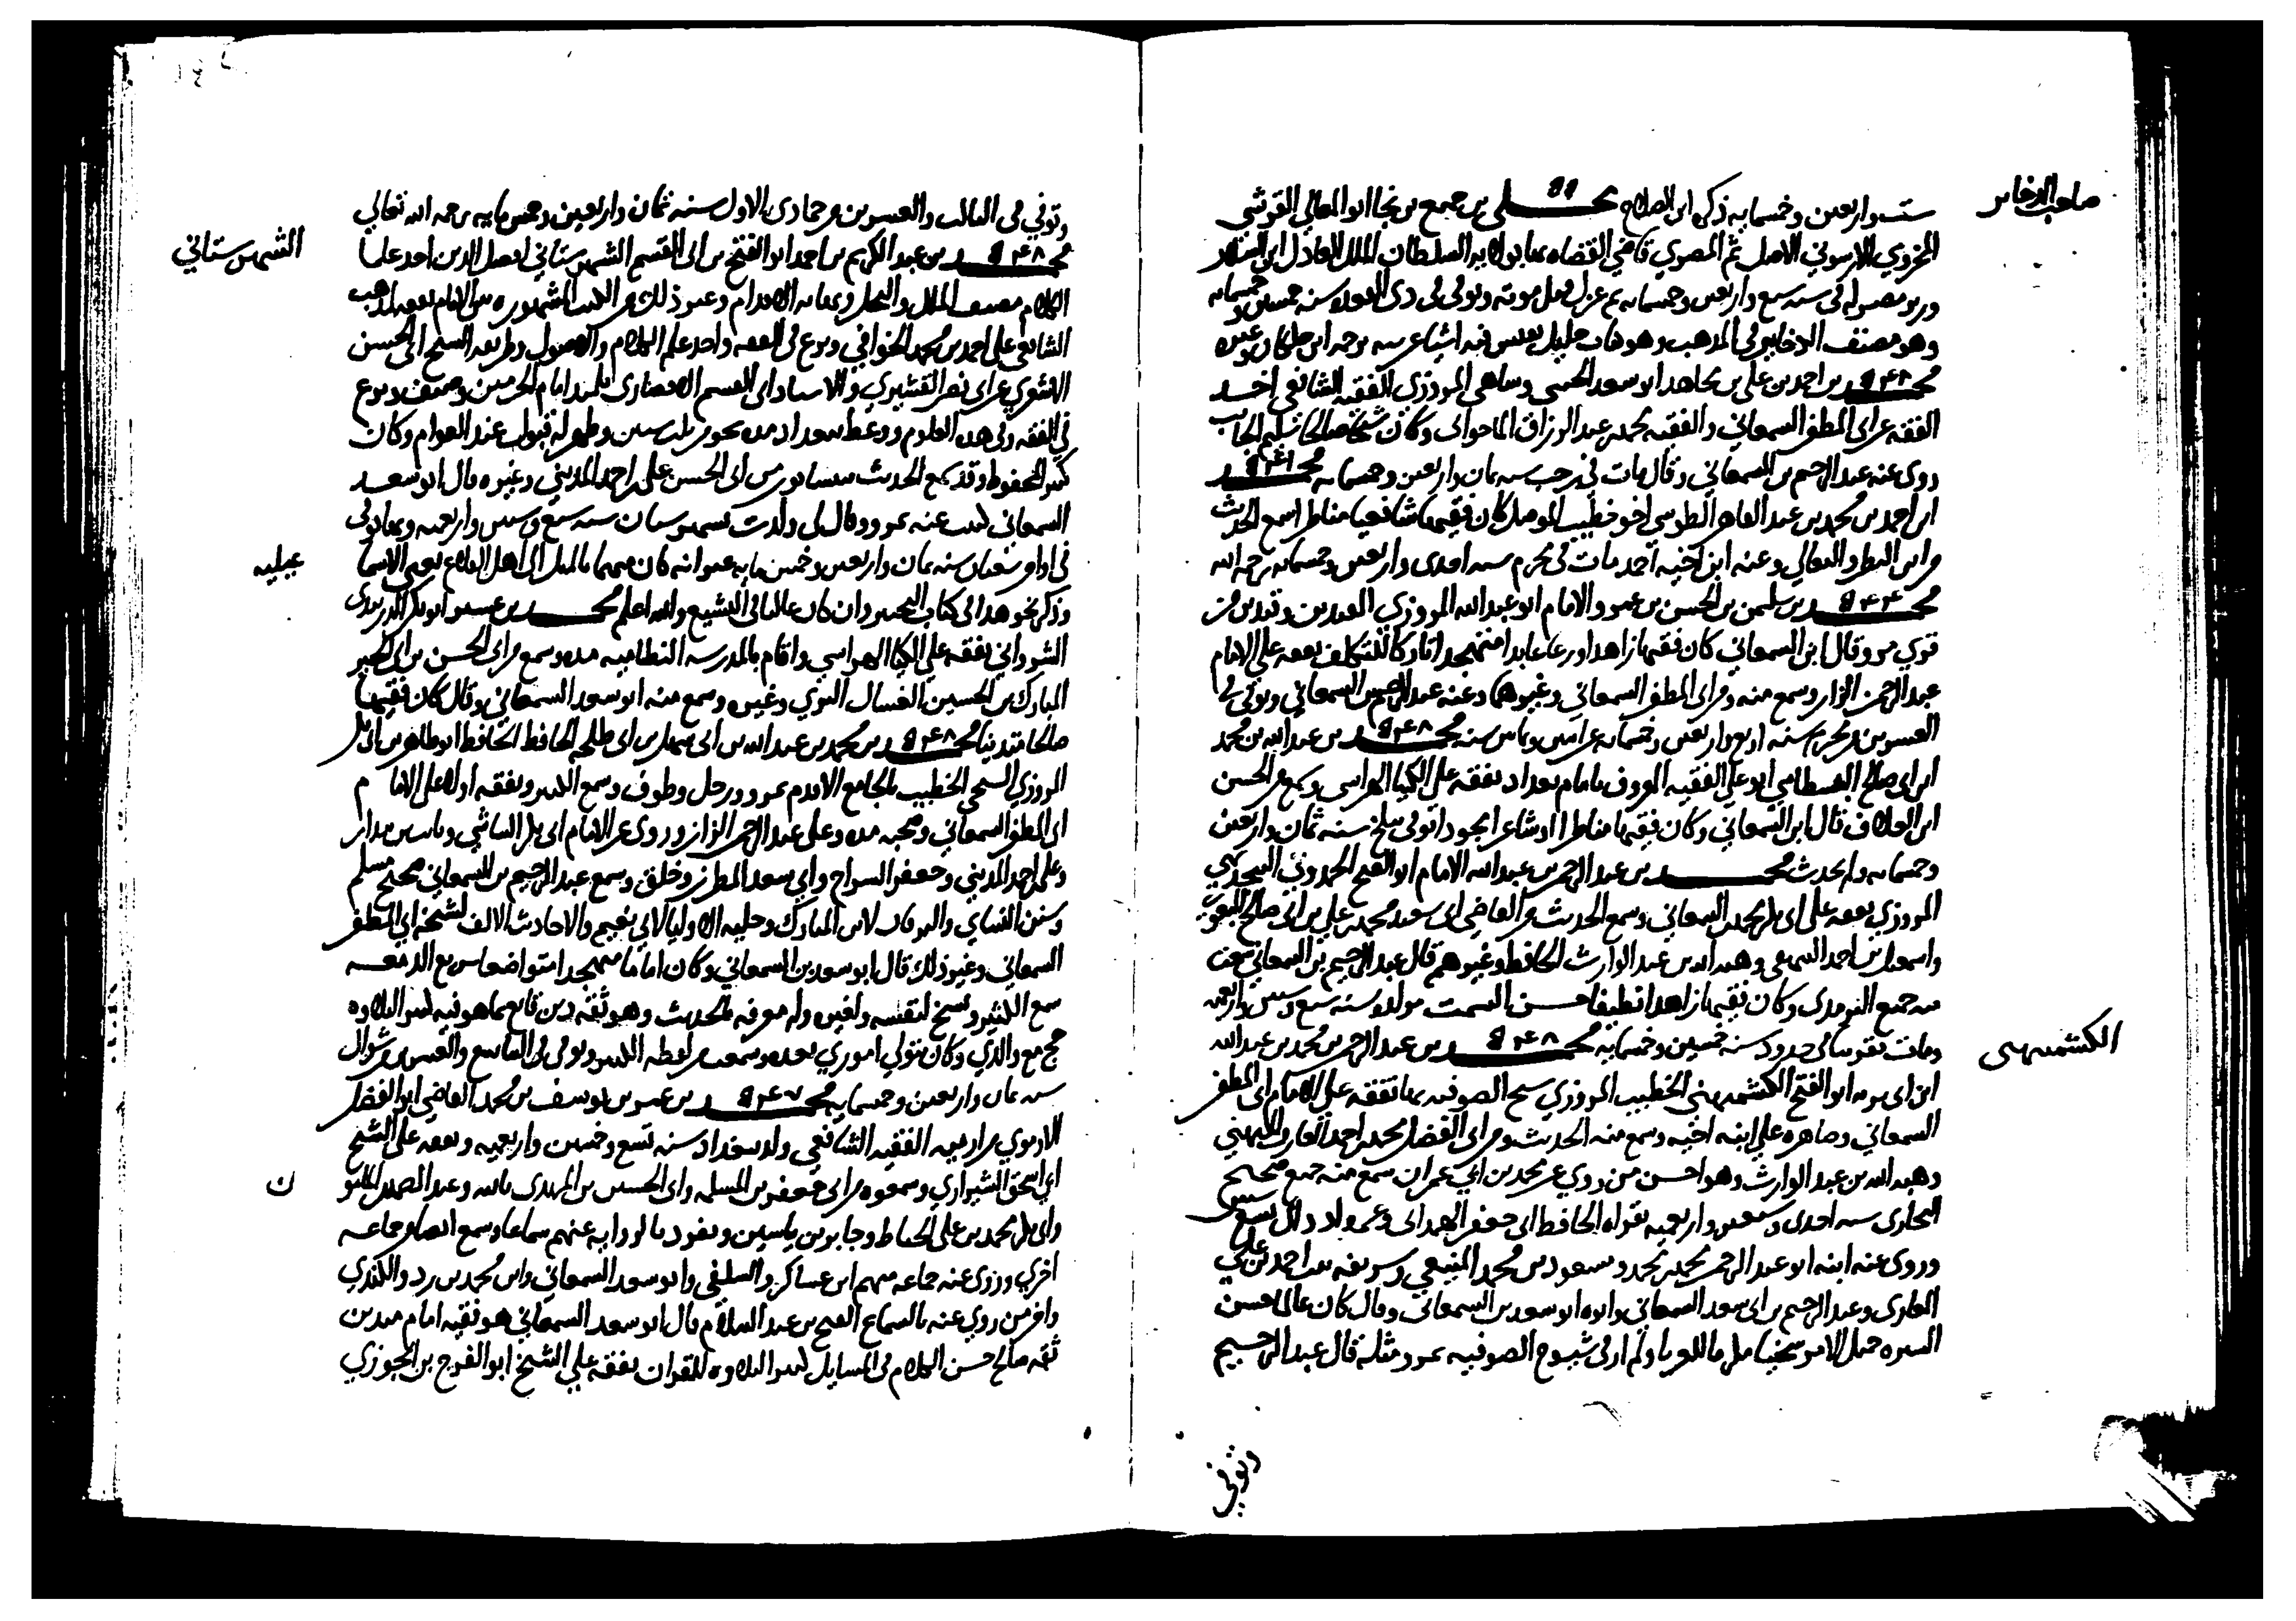 صاحب الذخاير
ست واربعين وخمسمايه ذكره ابن الصلاح مجلى بن جميع بن نجا ابو المعالي القرشي
المخزومي الارسوفي الاصل ثم المصري قاضي القضاه بها بولايه السلطان الملك العادل ابن السلار
وزير مصر له في سنه سبع واربعين وخمسمايه ثم عزل قبل موته وتوفي في ذي القعده سنه خمسين وخمسمايه
وهو مصنف الذخاير في المذهب وهو كتاب جليل نفيس فيه اشيا غريبه ترجمه ابن خلكان وغيره
محمد بن احمد بن علي بن مجاهد ابو سعد المروزي الفقيه الشافعي اخذ
الفقه عن ابي المظفر السمعاني والفقيه محمد بن عبد الرزاق الماخواني وكان شيخا صالحا سليم الجانب
روى عنه عبد الرحيم بن السمعاني وقال مات في رجب سنه ثمان واربعين وخمسمايه محمد
ابن احمد بن محمد بن عبد القاهر الطوسي اخو خطيب الموصل كان فقيها شافعيا مناظرا سمع الحديث
من ابن البطر والنعالي وعنه ابن اخيه احمد مات في محرم سنه احدى واربعين وخمسمايه رحمه الله
محمد بن سليمن بن الحسن بن عمرو الامام ابو عبد الله المروزي وفندين من
قري مرو قال ابن السمعاني كان فقيها زاهدا ورعا عابدا متهجدا تاركا للتكلف تفقه على الامام
عبد الرحمن الزاز وسمع منه ومن ابي المظفر السمعاني وغيرهما وعنه عبد الرحيم بن السمعاني وتوفي في
العشرين من محرم سنه اربع واربعين وخمسمايه عن اثنين وثمانين سنه محمد بن عبد الله بن محمد
ابن ابي صالح البسطامي ابو علي الفقيه المعروف بامام بغداد تفقه على الكيا الهراسي وسمع من الحسن
ابن العلاف قال ابن السمعاني وكان فقيها مناظرا وشاعرا مجودا توفي سلخ سنه ثمان واربعين
وخمسمايه ولم يحدث محمد بن عبد الرحمن بن عبد الله الامام ابو الفتح الحمدوني
المروزي تفقه على ابي بكر محمد السمعاني وسمع الحديث من القاضي ابي سعيد محمد بن علي بن ابي صالح البغوي
واسمعيل بن احمد البيهقي وهبه الله بن عبد الوارث الحافظ وغيرهم قال عبد الرحيم بن السمعاني سمعت
منه جميع الترمذي وكان فقيها زاهدا نظيفا حسن السمت مولده سنه سبع وستين واربعمايه
ومات تقريبا في حدود سنه خمسين وخمسمايه محمد بن عبد الرحمن بن محمد بن عبد الله
الكشميهني
ابن ابي توبه ابو الفتح الكشميهني الخطيب المروزي شيخ الصوفيه بها تفقه على الامام ابي المظفر
السمعاني وصاهره على ابنه اخيه وسمع منه الحديث ومن ابي الفضل محمد بن احمد العارف الميهني
وهبه الله بن عبد الوارث وهو احسن من روى عن محمد بن ابي عمران سمع منه جميع صحيح
البخاري سنه احدى وسبعين واربعمايه بقراه الحافظ ابي جعفر الهمداني وعمره اذ ذاك تسع سنين
وروى عنه ابنه ابو عبد الرحمن محمد بن محمد ومسعود بن محمد المنيعي وشريفه بنت احمد بن علي
الغازي وعبد الرحيم بن ابي سعد السمعاني وابوه ابو سعد بن السمعاني وقال كان عالما حسن
السيره جميل الامر سخيا مكرما للغربا ولم ار في شيوخ الصوفيه بمرو مثله قال عبد الرحيم
وتوفي
وتوفي في الثالث والعشرين من جمادى الاول سنه ثمان واربعين وخمس مايه رحمه الله تعالي
الشهرستاني
محمد بن عبد الكريم بن احمد ابو الفتح بن ابي القسم الشهرستاني افضل الدين احد علما
الكلام مصنف الملل والنحل ونهايه الاقدام وغير ذلك من الكتب المشهوره من الامام تفقه لمذهب
الشافعي على احمد بن محمد الخوافي وبرع في الفقه واخذ علم الكلام والاصول وطريقه الشيخ ابي الحسن
الاشعري عن ابي نصر القشيري والاستاد ابي القسم الانصاري تلميذ امام الحرمين وصنف وبرع
في الفقه وفي هذه العلوم ووعظ ببغداد مده نحو من ثلاث سنين وظهر له قبول عند العوام وكان
كثير المحفوظ وقد سمع الحديث بنيسابور من ابي الحسن علي بن احمد المديني وغيره قال ابو سعد
السمعاني كتبت عنه بمرو وقال لي ولدت بشهرستان سنه سبع وستين واربعمايه وبها توفي
في اواخر شعبان سنه ثمان واربعين وخمس مايه غير انه كان متهما بالميل الى اهل القلاع يعني الاسماعيليه
وذكر نحو هذا في كتاب التحبير وان كان غاليا في التشيع والله اعلم محمد بن عشير ابو بكر
الشرواني تفقه على الكيا الهراسي واقام بالمدرسه النظاميه مده وسمع من ابي الحسن بن ابي الخير
المبارك بن الحسين الغسال المقري وغيره وسمع منه ابو سعد السمعاني وقال كان فقيها
صالحا متدينا محمد بن محمد بن عبد الله بن ابي سهل بن ابي طلحه الحافظ ابو طاهر بن ابي بكر
المروزي السنجي الخطيب بالجامع الاقدم بمرو ورحل وطوف وسمع الكثير وتفقه اولا على الامام
ابي المظفر السمعاني وصحبه مده وعلى عبد الرحمن الزاز وروى عن الامام ابي بكر الشاشي وثابت بن بندار
وعلي بن احمد المديني وجعفر السراج وابي سعد المطرز وخلق وسمع عبد الرحيم بن السمعاني صحيح مسلم
وسنن النساي والرقاق لابن المبارك وحليه الاوليا لابي نعيم والاحاديث الالف لشيخه ابي المظفر
السمعاني وغير ذلك قال ابو سعد بن السمعاني وكان اماما متهجدا متواضعا سريع الدمعه
سمع الكثير ونسخ لنفسه ولغيره وله معرفه بالحديث وهو ثقه دين قانع بما هو فيه كثير التلاوه
حج مع والدي وكان يتولي اموري بعده وسمعت من لفظه الكثير وتوفي في التاسع والعشرين من شوال
سنه ثمان واربعين وخمسمايه محمد بن عمر بن يوسف بن محمد القاضي ابو الفضل
الارموي من ارميه الفقيه الشافعي ولد ببغداد سنه تسع وخمسين واربعمايه وتفقه على الشيخ
ابي اسحق الشيرازي وسمعوه من ابي جعفر بن المسلمه وابي الحسين بن المهتدي بالله وعبد الصمد بن المامون
وابي بكر محمد بن علي الخياط وجابر بن ياسين وتفرد بالروايه عنهم سماعا وسمع ايضا من جماعه
اخري وروى عنه جماعه منهم ابن عساكر والسلفي وابو سعد السمعاني والكندي
واخر من روي عنه بالسماع الفتح بن عبد السلام قال ابو سعد السمعاني هو فقيه امام متدين
ثقه صالح حسن الكلام في المسايل كثير التلاوه للقران تفقه على الشيخ ابو الفرج بن الجوزي